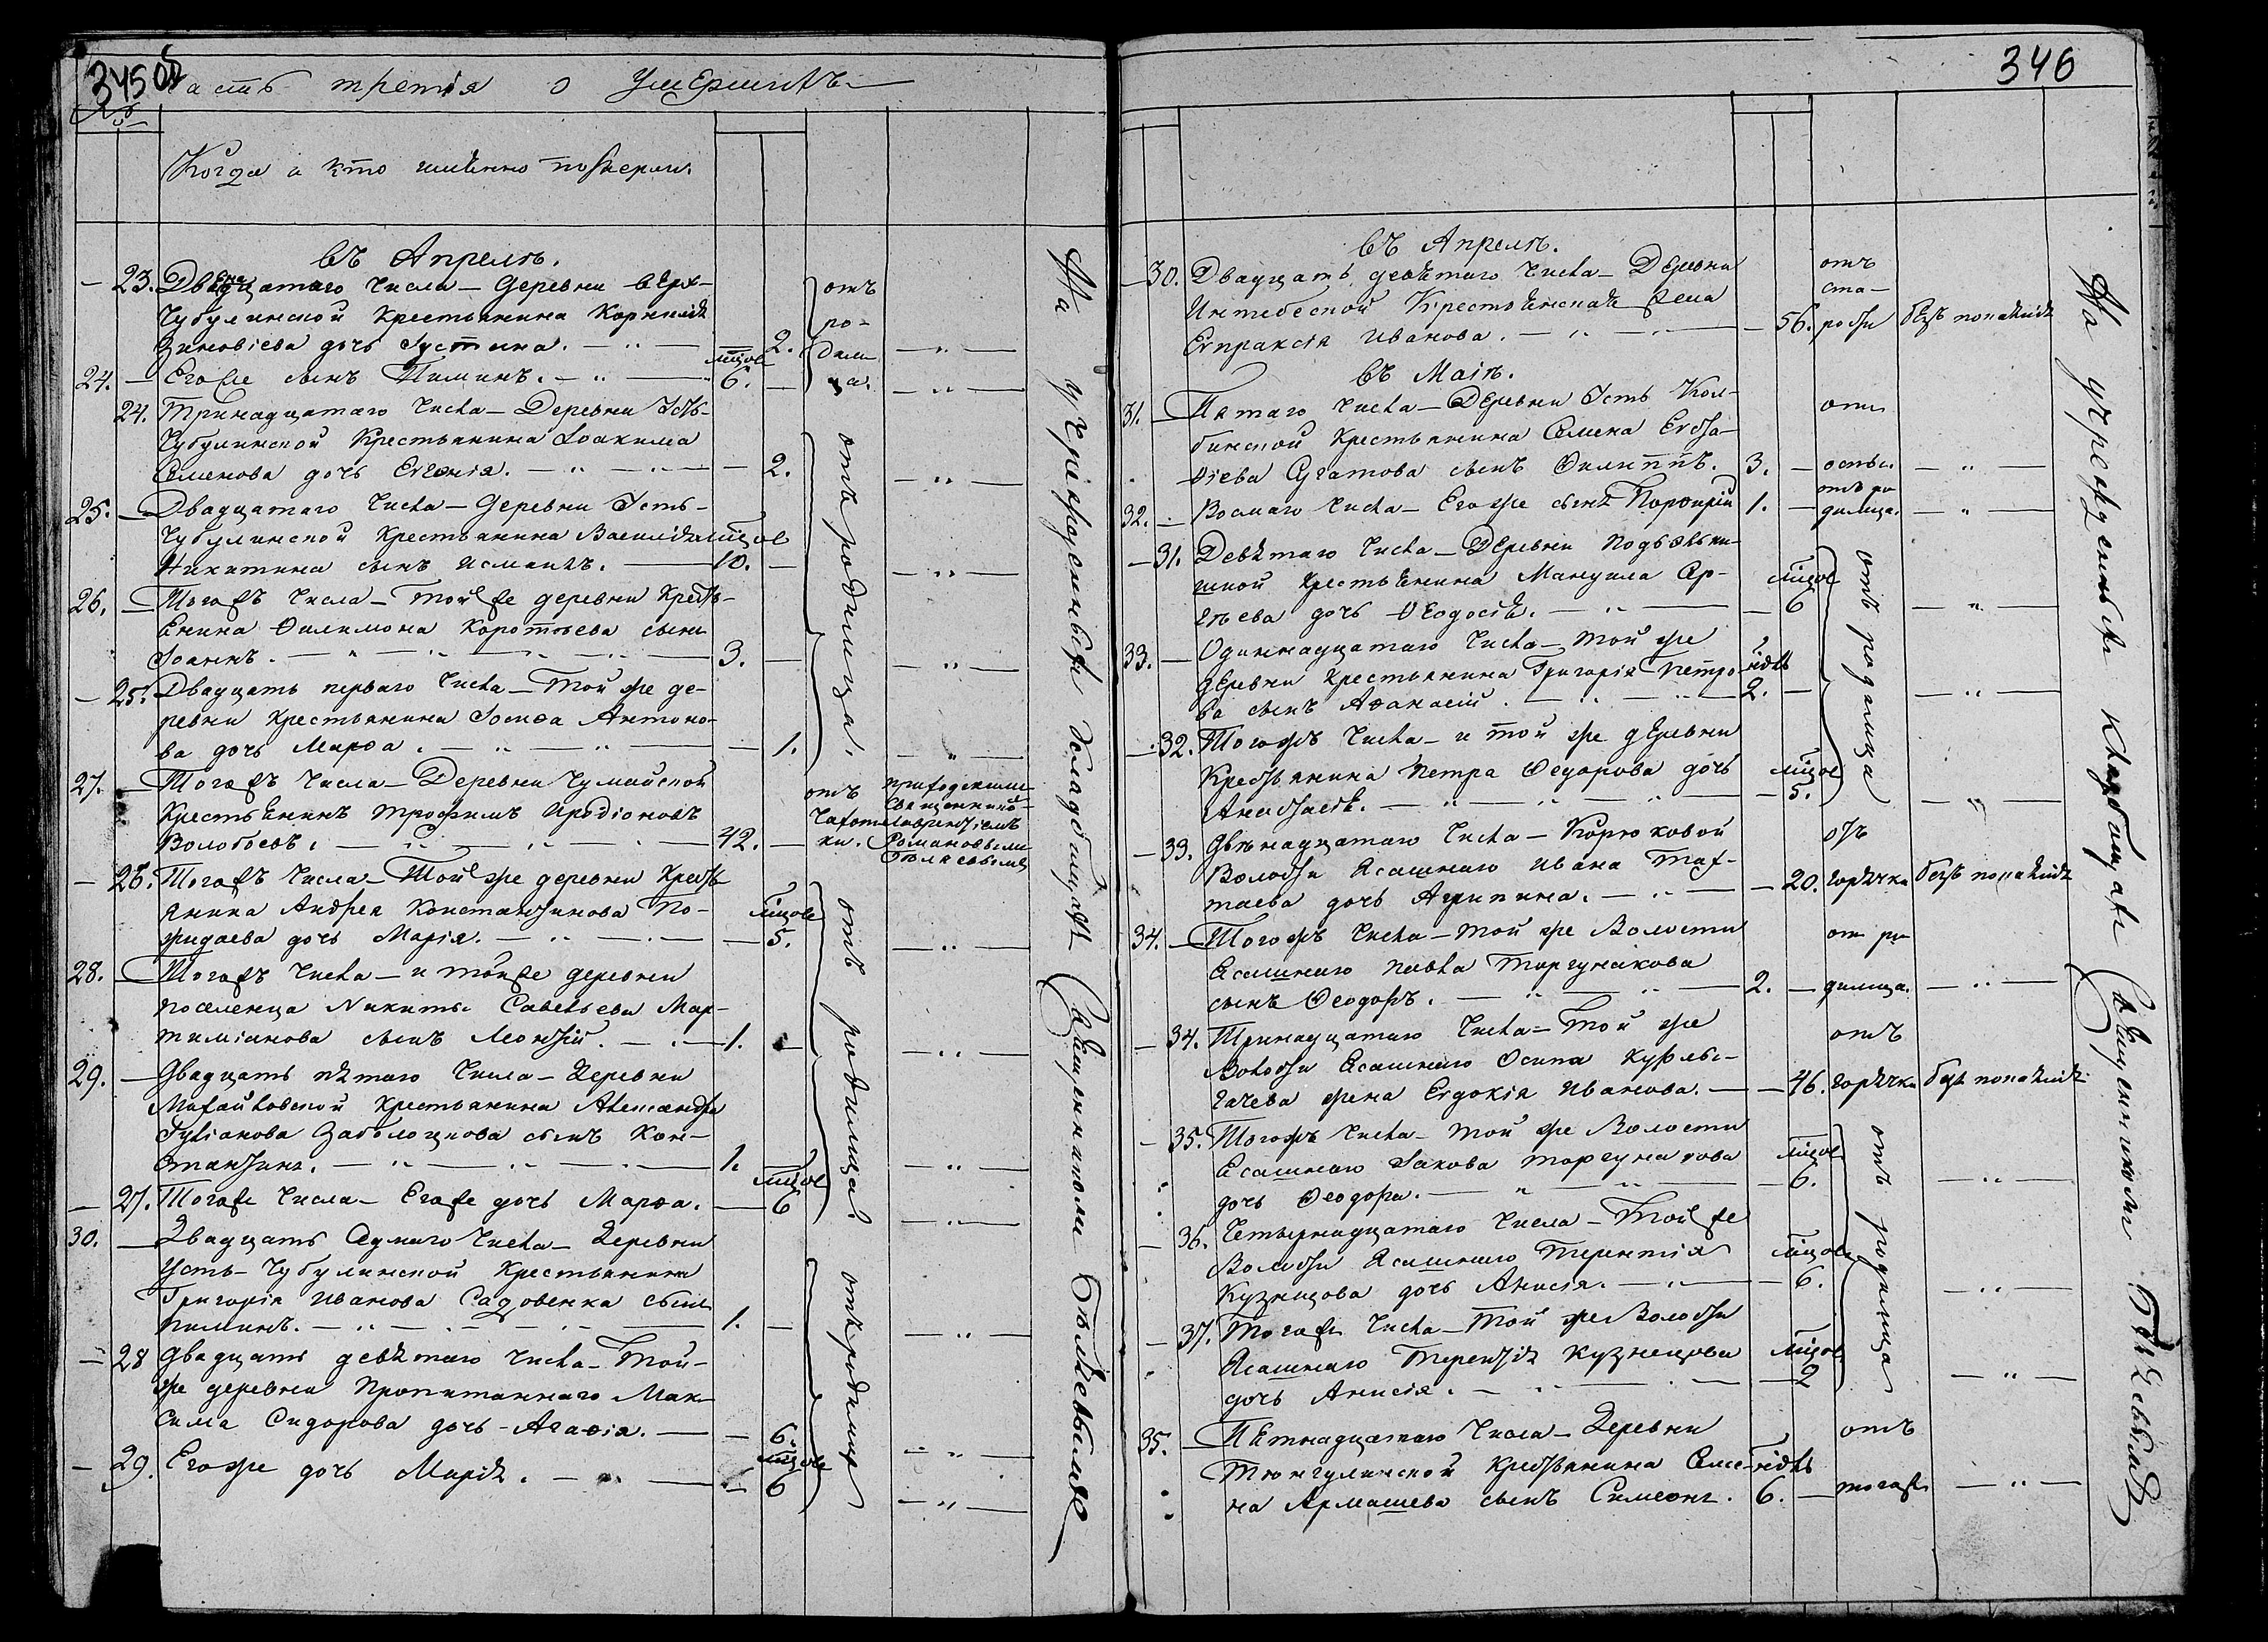 345 об
Часть третія о умершихъ
№
Когда и кто имѣнно померли.
въ Апрелѣ.
23. Двенадцатаго числа — деревни Верх-
Чубулинской Крестьянина Корнилія
Зиновіева дочь Іустина. 2. отъ родимца.
24. Его же сынъ Пиминъ. мцов 6.
24. Тринадцатаго числа — Деревни Усть-
Чубулинской Крестьянина Іоакима
Семенова дочь Евгенія. 2. отъ родимца.
25. Двадцатаго числа — деревни Усть-
Чубулинской Крестьянина Василія
Никитина сынъ Исмаилъ. мцов 10.
26. Тогожъ числа — той же деревни Кресть-
янина Филимона Коротаева сынъ
Іоаннъ. 3.
25. Двадцать перваго числа — Той же де-
ревни Крестьянина Іосифа Антоно-
ва дочь Марфа. 1.
27. Тогожъ числа — Деревни Чумайской
Крестьянинъ Трофимъ Иродіоновъ
Волобоевъ. 42. отъ чахотки. приходскимъ Священникомъ Лаврентіемъ Романовымъ Бѣляевымъ
26. Тогожъ числа — Той же деревни Кресть
янина Андрея Константинова По-
жидаева дочь Марія. мцов 5. отъ родимца.
28. Тогожъ числа — и той же деревни
поселенца Никиты Савельева Мар-
тиміанова сынъ Леонтій. 1.
29. Двадцать пятаго числа — Деревни
Михайловской Крестьянина Александра
Іуліанова Заболоцкова сынъ Кон-
стантинъ. 1.
27. Тогоже числа — Егоже дочь Марфа. мцов 6
30. Двадцать седмаго числа — Деревни
Усть-Чубулинской Крестьянина
Григорія Иванова Садовенка сынъ
Пиминъ. 1. отъ родимца
28 Двадцать девятаго числа — Той-
же деревни Пропитаннаго Мак-
сима Сидорова дочь — Агафія. 6.
29. Его же дочь Марія. мцов 6
На учрежденныхъ кладбищахъ Священникомъ Бѣляевымъ
346
въ Апрелѣ.
30. Двадцать девятаго числа — Деревни
Интебеской Крестьянская жена
Евпраксія Иванова. 56. отъ старости безъ покаянія
въ Маіѣ.
31. Пятаго числа — Деревни Усть Кол-
бинской Крестьянина Семена Евста-
фіева Сугатова сынъ Филиппъ. 3. отъ оспы.
32. Восмаго числа — Его же сынъ Порфирій 1. отъ родимца.
31. Девятаго числа — Деревни Подъельни-
шной Крестьянина Мануила Ар-
дочь Феодосія. мцов 6 отъ родимца
33. Одиннадцатаго числа — той же
деревни Крестьянина Григорія Петро-
ва сынъ Афанасій. нідль 2.
32. Тогожъ числа — и той же деревни
Крестьянина Петра Федорова дочь
Анастасія. мцов 5.
33. Двѣнадцатаго числа — Корюковой
Волости Ясашнаго Ивана Тах-
таева дочь Агрипина. 20. отъ горячки безъ покаянія
34. Тогожъ числа — той же Волости
Ясашнаго Павла Торгунакова
сынъ Феодоръ. 2. отъ родимца.
34. Тринадцатаго числа — Той же
Волости Ясашнаго Осипа
жена Евдокія Иванова. 46. отъ горячки безъ покаянія
35. Тогожъ числа — той же Волости
Ясашнаго Іакова Торгунакова
дочь Феодора. мцов 6. отъ родимца
36. Четырнадцатаго числа — Той же
Волости Ясашнаго Терентія
Кузнецова дочь Анисія. мцов 6.
37. Тогожъ числа — той же Волости
Ясашнаго Терентія Кузнецова
дочь Анисія. мцов 2
35. Пятнадцатаго числа — Деревни
Тюнгулинской Крестьянина Семе-
на Армашева сынъ Симеонъ. нідль 6. отъ тогожъ
На учрежденныхъ кладбищахъ Священникомъ Бѣляевымъ